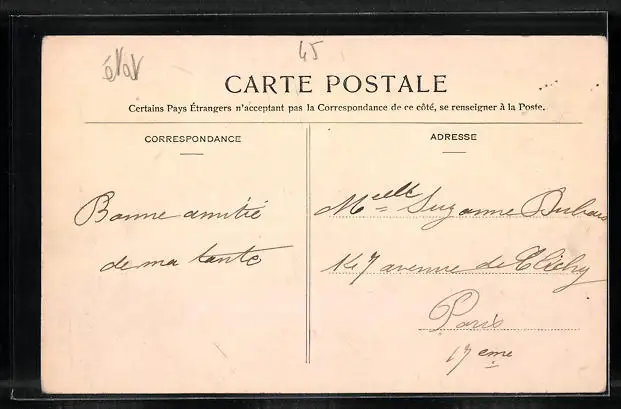 état
45
CARTE POSTALE
Certains Pays Étrangers n'acceptant pas la Correspondance de ce côté, se renseigner à la Poste.
CORRESPONDANCE
ADRESSE
Bonne amitié
de ma tante
Melle Suzanne Dubois
147 avenue de Clichy
Paris
17 eme